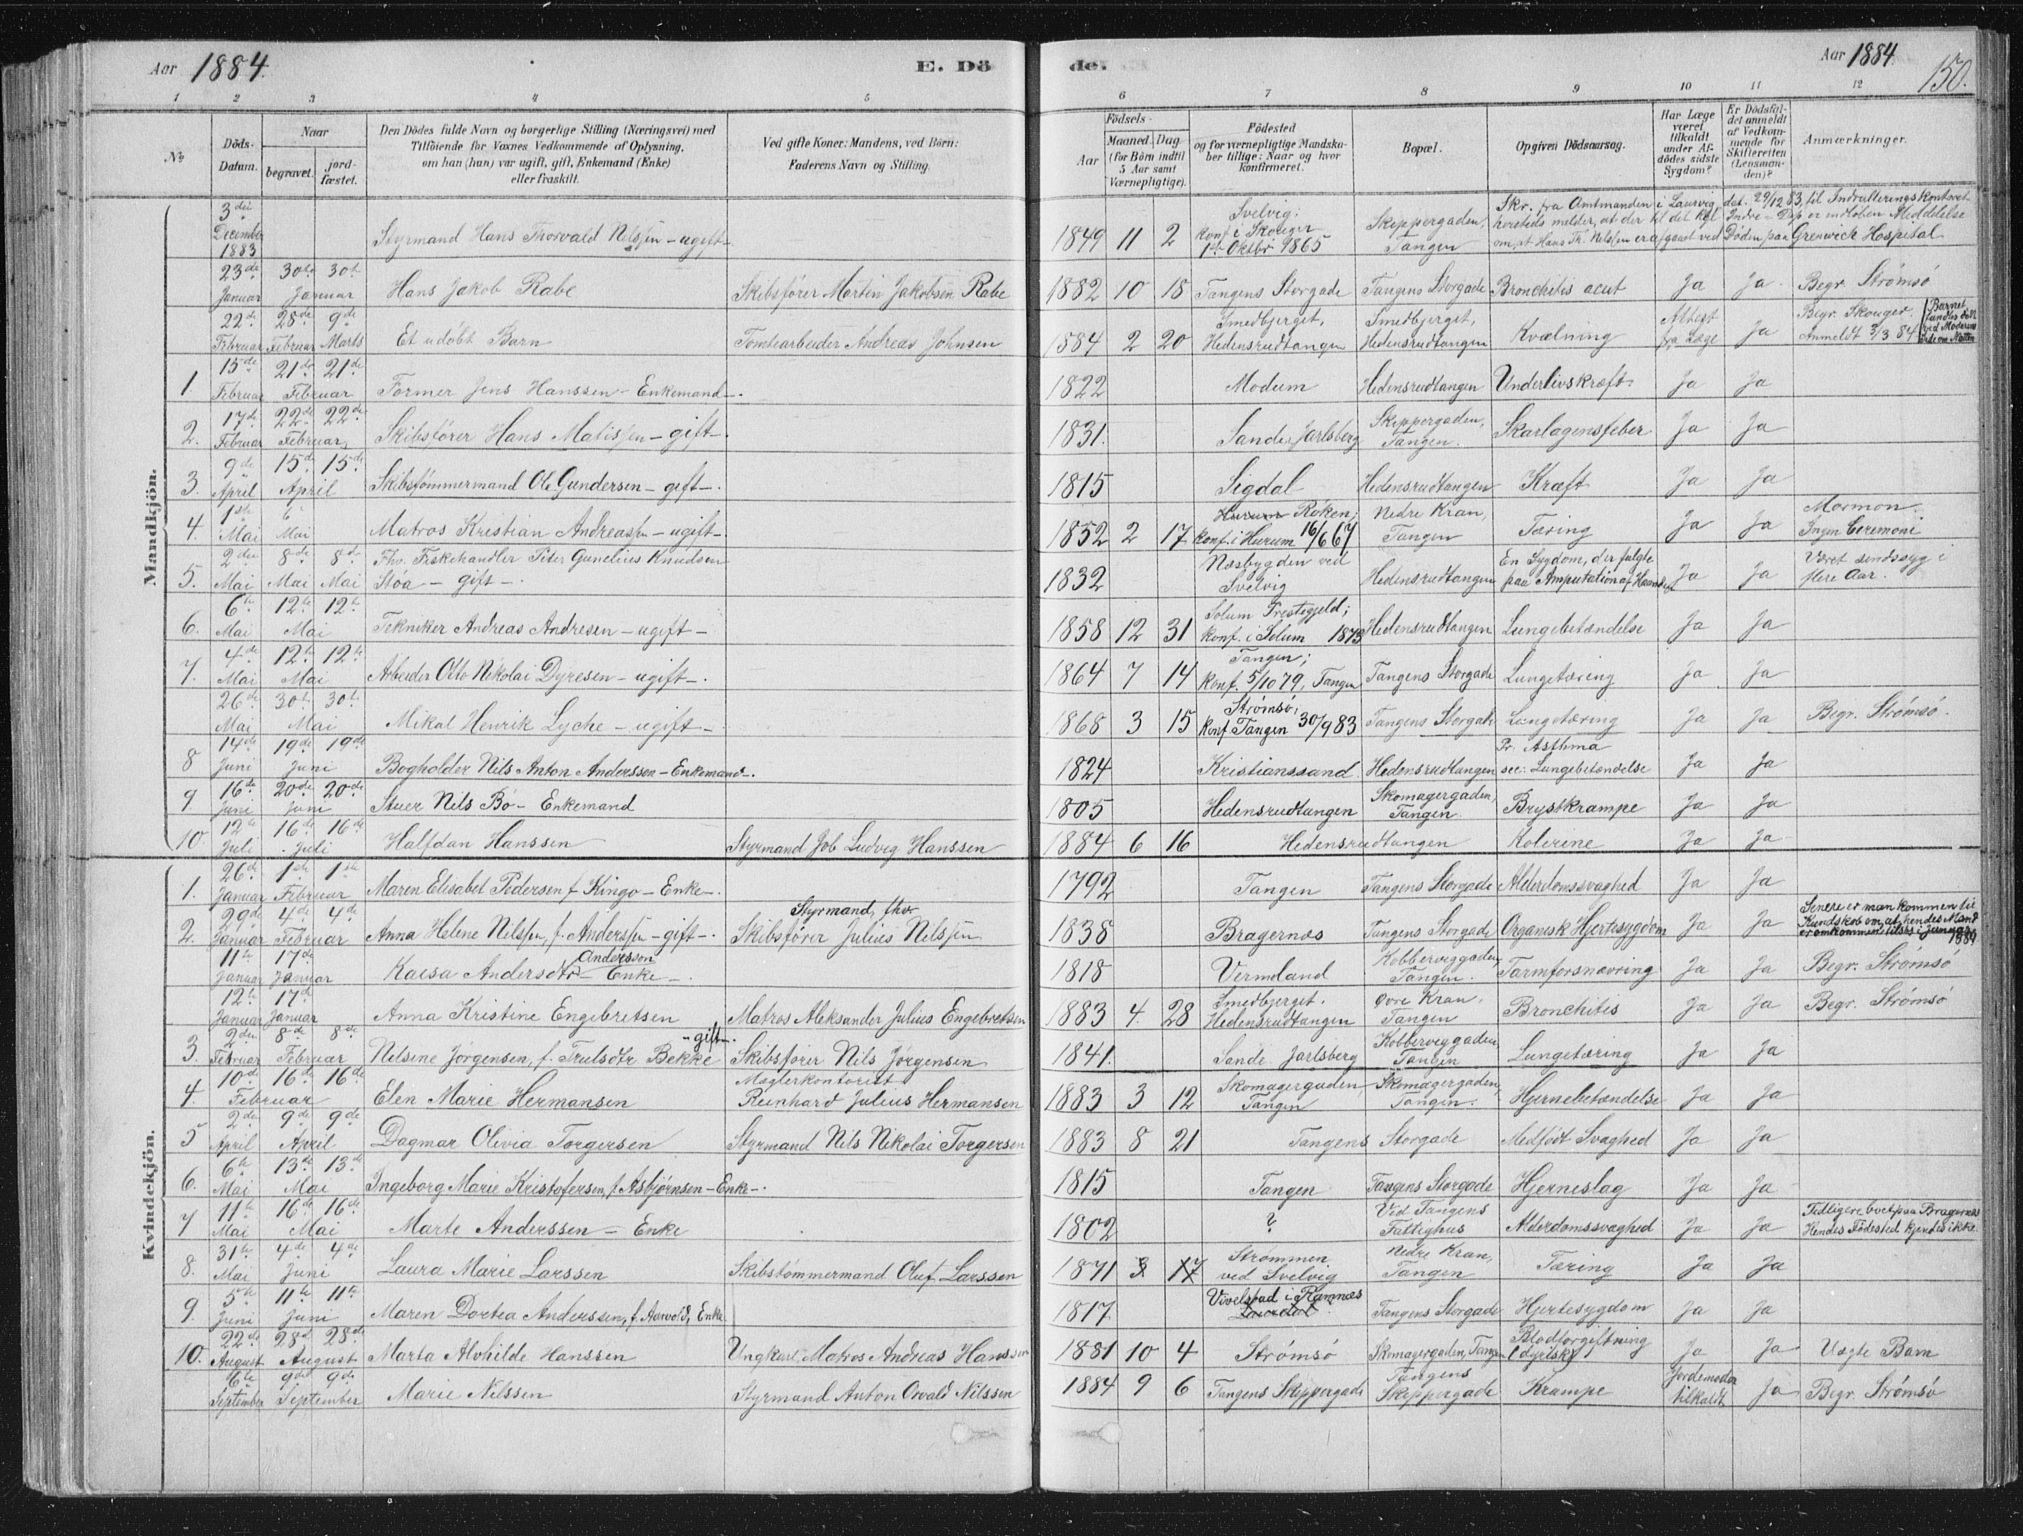 Aar 1884. E. Dö de. Aar 1884. 150.
1 2 3 4 5 6 7 8 9 10 11 12
No Döds-Datum. Naar begravet. jord-fæstet. Den Dödes fulde Navn og borgerlige Stilling (Næringsvei) med Tilföiende for Voxnes Vedkommende af Oplysning, om han (hun) var ugift, gift, Enkemand (Enke) eller fraskilt. Ved gifte Koner: Mandens, ved Börn: Faderens Navn og Stilling. Födsels- Aar Maaned Dag (for Börn indtil 5 Aar samt Værnepligtige). Födested og for værnepligtige Mandska-ber tillige: Naar og hvor konfirmeret. Bopæl. Opgiven Dödsaarsag. Har Læge været tilkaldt under Af-dödes sidste Sygdom? Er Dödsfal-det anmeldt af Vedkom-mende for Skifteretten (Lensman-den)? Anmærkninger.
Mandkjön.
3die December 1883 Styrmand Hans Thorvald Nilssen – ugift – 1849 11 2 Svelvig; Konf. i Skouger 1ste Oktbr 1865 Skippergaden, Tangen Skr. fra Amtmanden i Laurvig det. 29/12 83 til Indrulleringskontoret herisieds melder, at der til det Kgl Indre-Dep er indløben Meddelelse om, at Hans Th. Nilssen er afgaaet ved Døden paa Grenwich Hospital
23de Januar 30te 30te Januar Hans Jakob Rabe Skibsfører Martin Jakobsen Rabe 1882 10 18 Tangens Storgade Tangens Storgade Bronchitis acut Ja Ja Begr. Strømsø
22de Februar 28de Februar 9de Marts Et udøbt Barn Tomtearbeider Andreas Johnsen 1884 2 20 Smedbjerget, Hedensrudtangen Smedbjerget, Hedensrudtangen Kvælning Attest fra Læge Ja Begr. Skouger. Anmeldt 3/3 84 Barnet fandtes død ved Moderens Side om Natten
1 15de Februar 21de 21de Februar Former Jens Hanssen – Enkemand –. 1822 Modum Hedensrudtangen Underlivskræft Ja Ja
2. 17de Februar 22de 22de Februar Skibsfører Hans Matissen – gift –. 1831. Sande Jarlsberg Skippergaden, Tangen. Skarlagensfeber Ja Ja
3. 9de April 15de 15de April Skibstømmermand Ole Gundersen – gift –. 1815 Sigdal Hedensrudtangen Kræft Ja Ja
4. 1ste Mai 6 Mai Matros Kristian Andreassen – ugift –. 1852 2 17 Hurum Røken; Konf. i Hurum 16/6 67 Nedre Kran, Tangen Tæring Ja Ja Mormon. Ingen Ceremoni
5. 2den Mai 8de Mai 8de Mai Fhv. Fiskehandler Peter Gunelius Knudsen Stoa – gift –. 1832 Næsbygden ved Svelvig Hedensrudtangen En Sygdom, der fulgte paa Amputation af Haanden Ja Ja Været sindssyg i flere Aar.
6. 6te Mai 12te 12te Mai Tekniker Andreas Andresen – ugift – 1858 12 31 Solum Prestegjeld; Konf. i Solum 1873 Hedensrudtangen Lungebetændelse Ja Ja
7. 4de Mai 12te 12te Mai Arbeider Otto Nikolai Dyresen – ugift –. 1864 7 14 Tangen; Konf. 5/10 79, Tangen Tangens Storgade Lungetæring Ja Ja
26de Mai 30te 30te Mai Mikal Henrik Lyche – ugift – 1868 3 15 Strømsø; Konf Tangen 30/9 83 Tangens Storgade Lungetæring Ja Ja Begr. Strømsø.
8 14de Juni 19de 19de Juni Bogholder Nils Anton Anderssen – Enkemand –. 1824 Kristianssand. Hedensrudtangen Pr. Asthma sec: Lungebetændelse Ja Ja
9 16de Juni 20de 20de Juni Stuer Nils Bø – Enkemand 1805 Hedensrudtangen Skomagergaden, Tangen. Brystkrampe Ja Ja
10. 12te Juli 16de 16de Juli Halfdan Hanssen Styrmand Job Ludvig Hanssen 1884 6 16 Hedensrudtangen Kolerine Ja Ja
Kvindekjön.
1. 26de Januar 1ste 1ste Februar Maren Elisabet Pedersen f. Kingo – Enke –. 1792 Tangen Tangens Storgade Alderdomssvaghed Ja Ja
2. 29de Januar 4de 4de Februar Anna Helene Nilssen, f. Anderssen – gift –. Styrmand, fhv. Skibsfører Julius Nilssen 1838 Bragernæs Tangens Storgade Organisk Hjertesygdom Ja Ja Senere er man kommen til Kundskab om, at hendes Mand er omkommen tilsøs i Januar 1884
11te Januar 17de Januar Kaisa Andersdtr Andersson – Enke –. 1818 Vermland Kobberviggaden, Tangen. Tarmforsnævring Ja Ja Begr. Strømsø
12te Januar 17de Januar Anna Kristine Engebretsen Matros Aleksander Julius Engebretsen 1883 4 28 Smedbjerget. Hedensrudtangen Øvre Kran, Tangen Bronchitis Ja Ja Begr. Strømsø
3. 2den Februar 8de 8de Februar Nilsine Jørgensen, f. Trulsdtr Bekke – gift –. Skibsfører Nils Jørgensen 1841. Sande Jarlsberg Kobberviggaden, Tangen Lungetæring Ja Ja
4. 10de 16de 16de Februar Elen Marie Hermansen Mæglerkontorist Reinhard Julius Hermansen 1883 3 12 Skomagergaden, Tangen Skomagergaden, Tangen. Hjernebetændelse Ja Ja
5 2den April 9de 9de April Dagmar Olivia Torgersen Styrmand Nils Nikolai Torgersen 1883 8 21 Tangens Storgade Medfødt Svaghed Ja Ja
6. 6te Mai 13de 13de Mai Ingeborg Marie Kristofersen, f. Asbjørnsen – Enke –. 1815 Tangen Tangens Storgade Hjerneslag Ja Ja
7 11te Mai 16de 16de Mai Marte Anderssen – Enke 1802 ? Ved Tangens Fattighus Alderdomssvaghed Ja Ja Tidligere boet paa Bragernæs Hendes Fødested kjendes ikke.
8. 31te Mai 4de 4de Juni Laura Marie Larssen Skibstømmermand Oluf Larssen 1871 3 17 Strømmen ved Svelvig Nedre Kran, Tangen Tæring Ja Ja
9. 5te Juni 11te 11te Juni Maren Dortea Anderssen, f. Aarvold, Enke. 1817. Vivelstad i Ramnæs Tangens Storgade Hjertesygdom Ja Ja
10. 22de August 28de 28de August Marta Alvhilde Hanssen Ungkarl, Matros Andreas Hanssen 1881 10 4 Strømsø Skomagergaden, Tangen Blodforgiftning (dyrisk) Ja Ja Uægte Barn
6te September 9de 9de September Marie Nilssen Styrmand Anton Osvald Nilssen 1884 9 6 Tangens Skippergade Tangens Skippergade Krampe Jordemoder tilkaldt Ja Begr. Strømsø